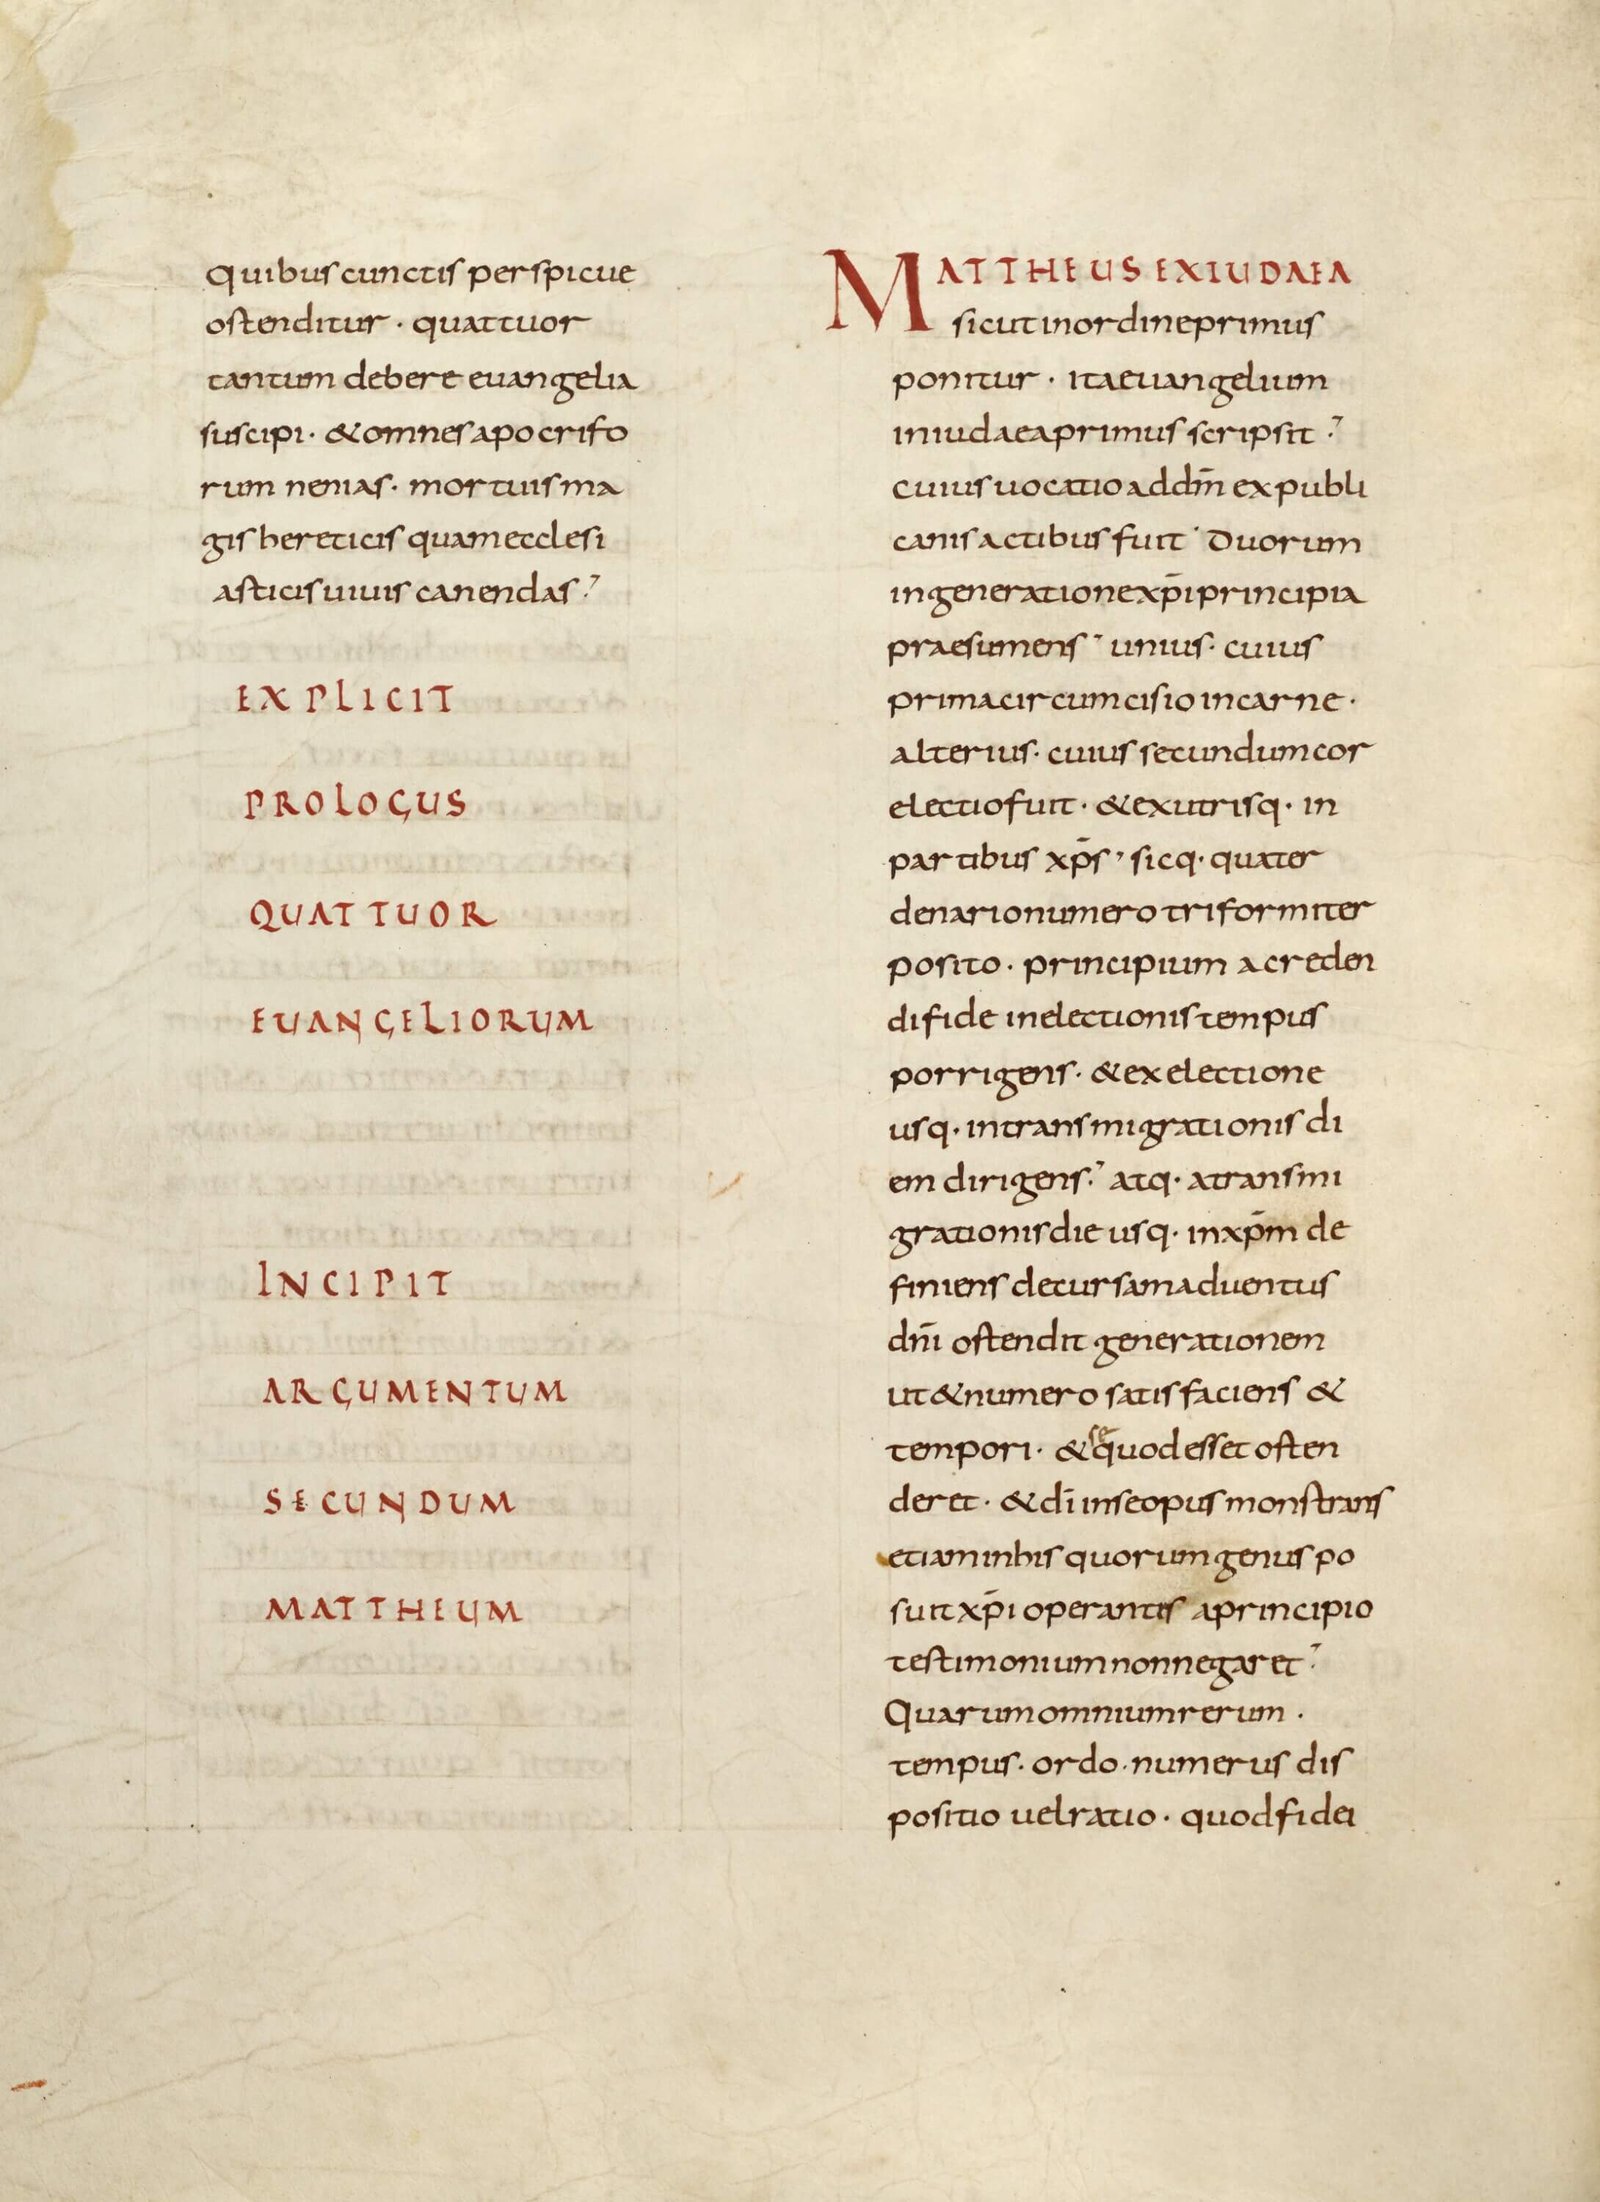 Quibus cunctis perspicue
ostenditur · quattuor
tantum debere euangelia
suscipi · & omnes apocrifo
rum nenias · mortuis ma
gis hereticis quam ecclesi
asticis uiuis canendas ·
EXPLICIT
PROLOGUS
QUATTUOR
EUANGELIORUM
INCIPIT
ARGUMENTUM
SECUNDUM
MATTHEUM
MATTHEUS EX IUDAEA
sicut in ordine primus
ponitur · ita euangelium
in iudaea primus scripsit ·
cuius uocatio ad dm̄ ex publi
canis actibus fuit · Duorum
in generatione xp̄i principia
praesumens · unius · cuius
prima circumcisio in carne ·
alterius · cuius secundum cor
electio fuit · & ex utrisq · in
partibus xp̄s · sicq · quater
denario numero triformiter
posito · principium a creden
di fide in electionis tempus
porrigens · & ex electione
usq · in transmigrationis di
em dirigens · atq · a transmi
grationis die usq · in xp̄m de
finiens decursam aduentus
dn̄i ostendit generationem
ut & numero satisfaciens &
tempori · & se quod esset osten
deret · & dī in se opus monstrans
etiam in his quorum genus po
suit xp̄i operantis a principio
testimonium non negaret ·
Quarum omnium rerum ·
tempus · ordo · numerus dis
positio uel ratio · quod fidei